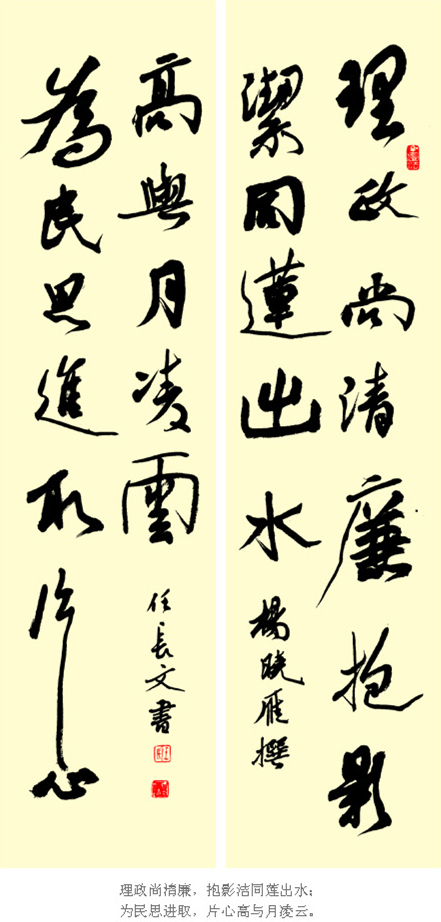 理政尚清廉抱影
潔同蓮出水
楊曉雁撰
為民思進取片心
高與月凌雲
任長文書
理政尚清廉，抱影洁同莲出水；
为民思进取，片心高与月凌云。